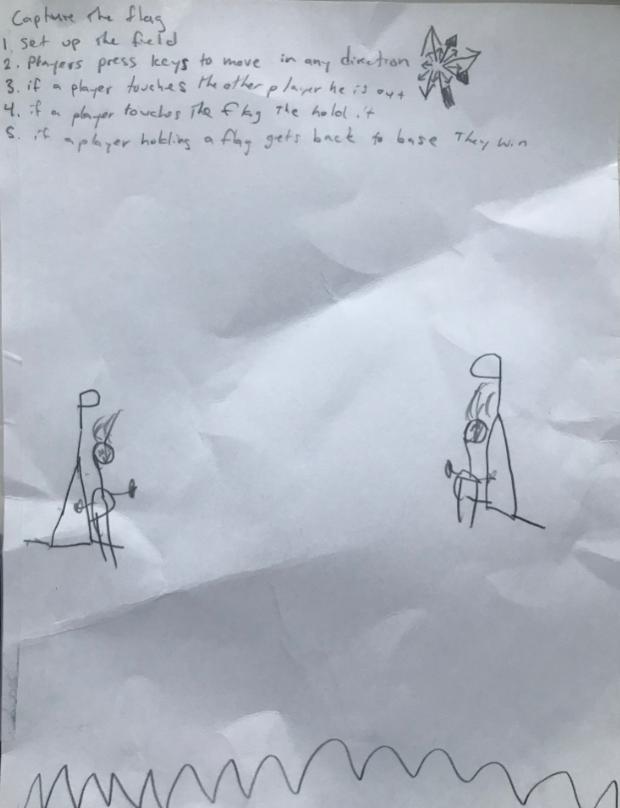 Capture The flag
1. Set up the field
2. Players press keys to move in any direction
3. if a player touches the other player he is out
4. if a player touches the flag the hold it
5. if a player holding a flag gets back to base They win